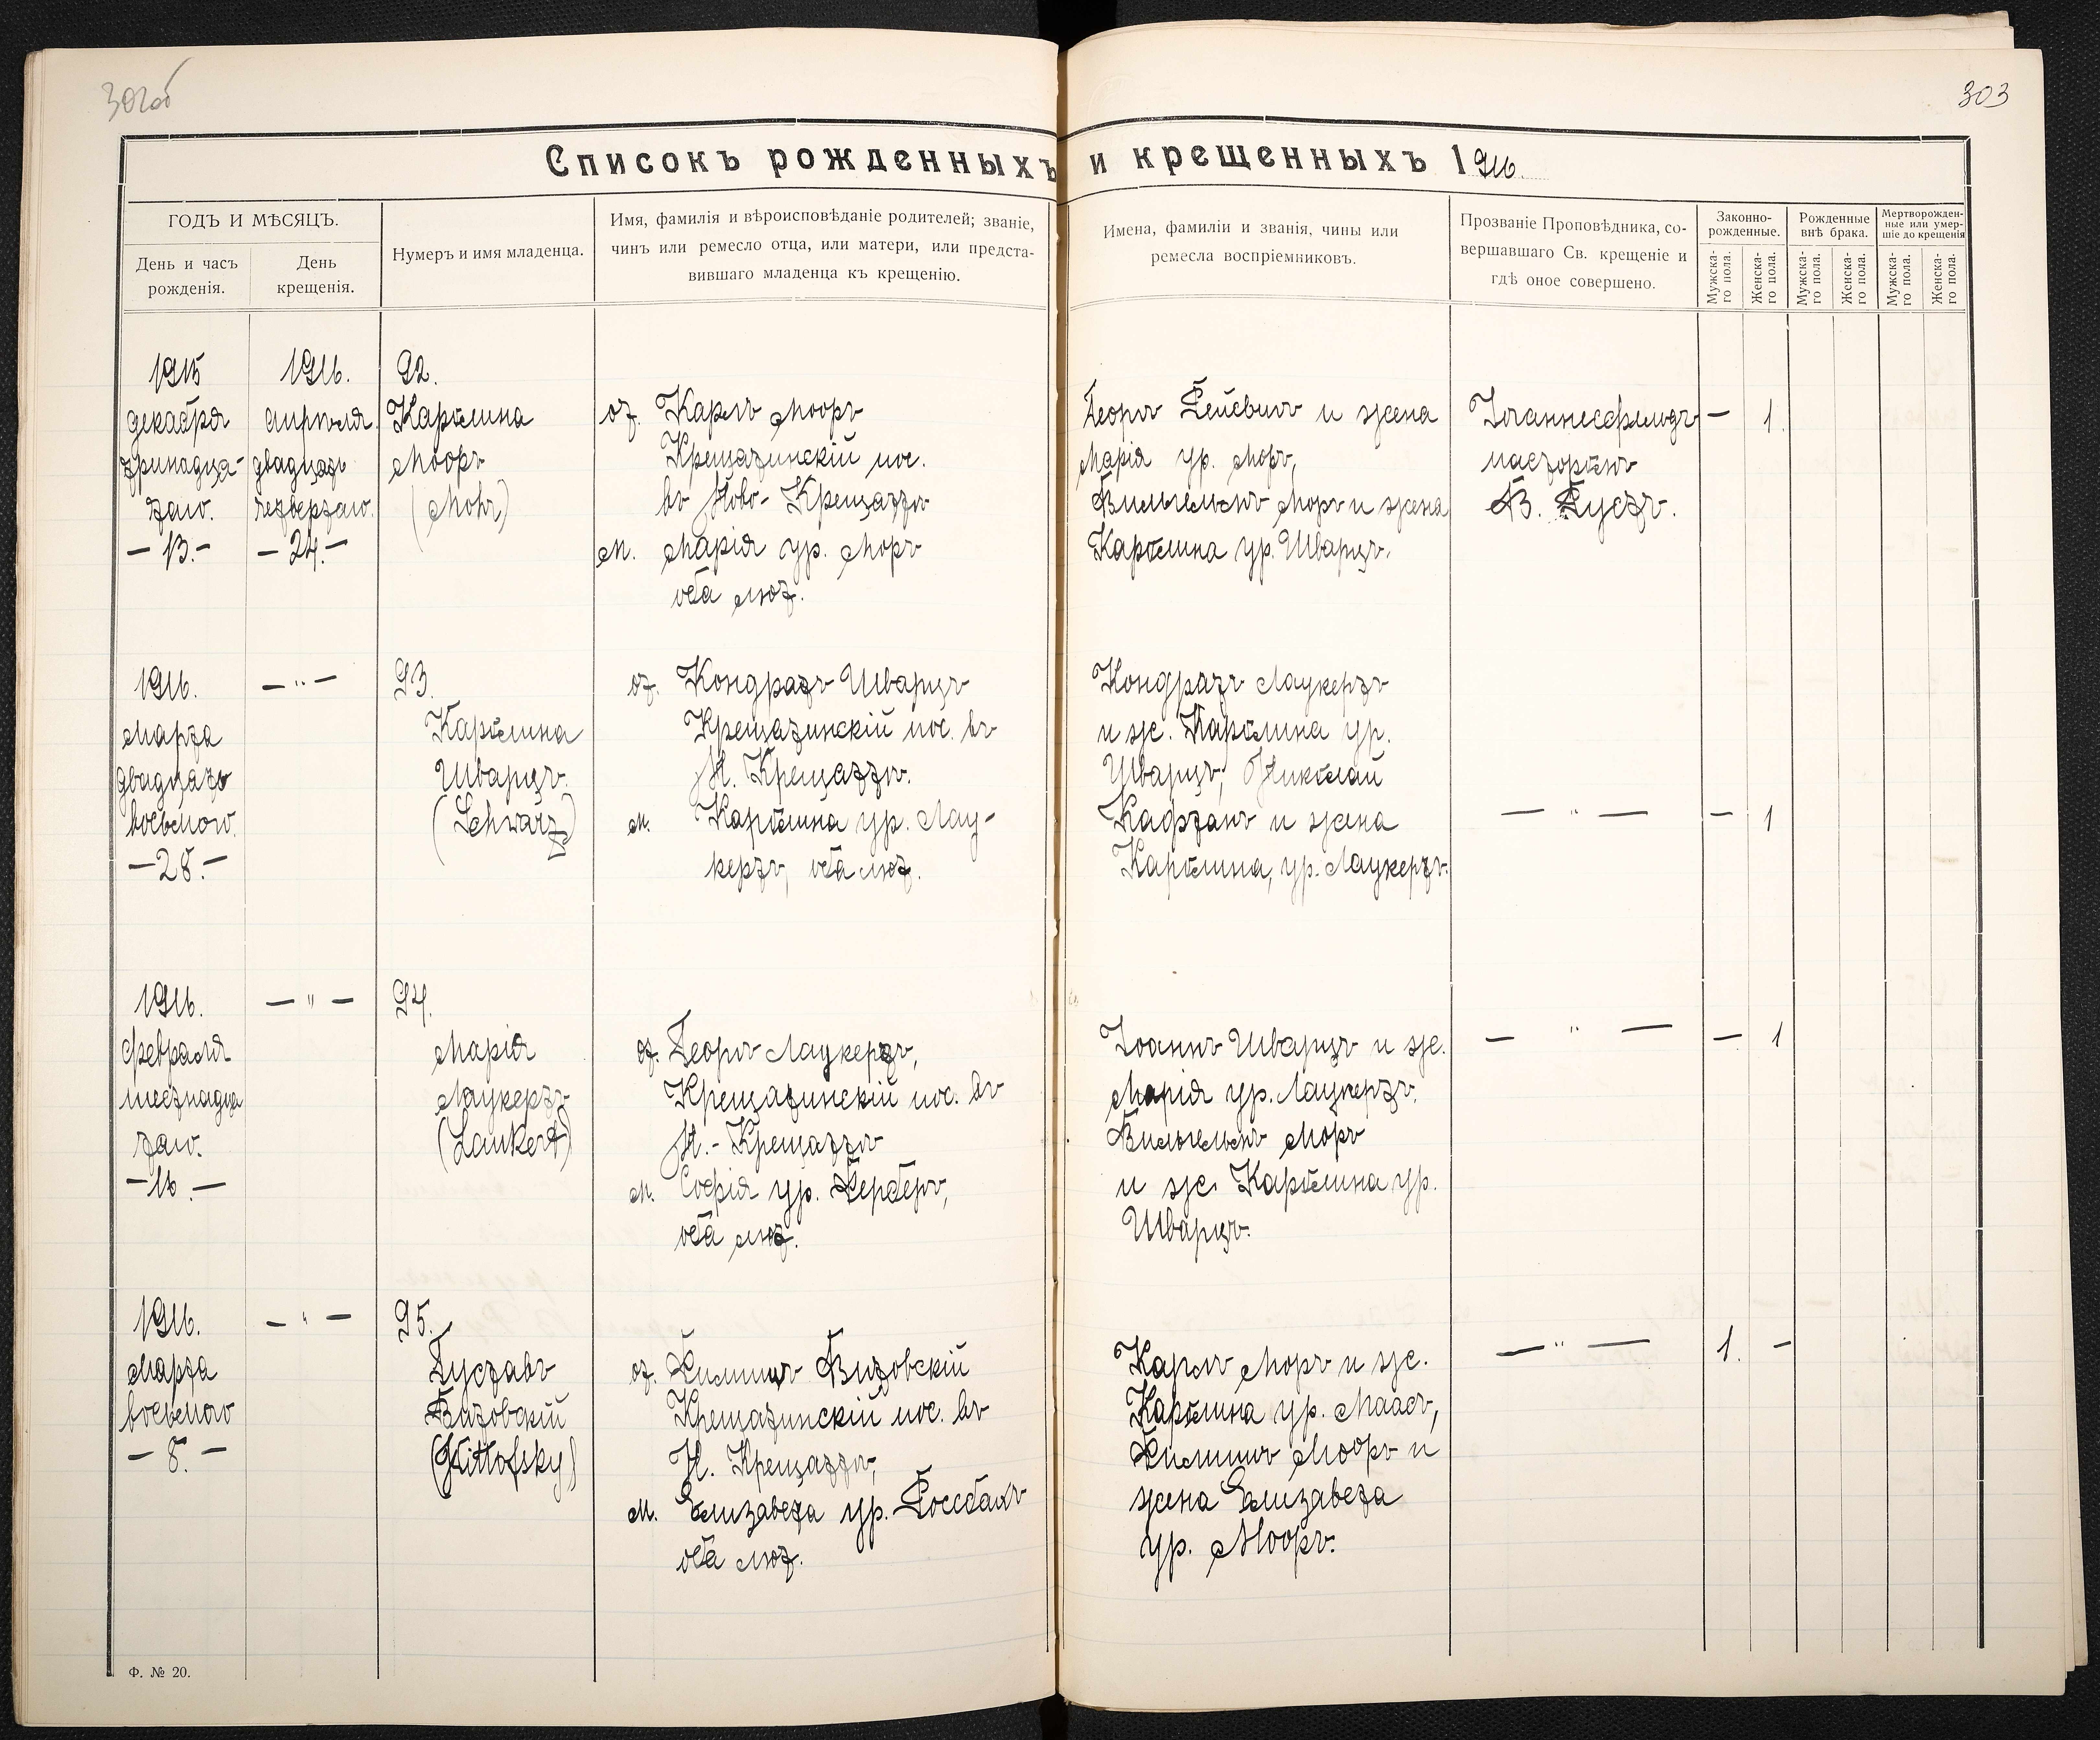 302об
303
Списокъ рожденныхъ и крещенныхъ 1916.
ГОДЪ И МѢСЯЦЪ.
День и часъ рожденія.
День крещенія.
Нумеръ и имя младенца.
Имя, фамилія и вѣроисповѣданіе родителей; званіе,
чинъ или ремесло отца, или матери, или предста-
вившаго младенца къ крещенію.
Имена, фамиліи и званія, чины или
ремесла воспріемниковъ.
Прозваніе Проповѣдника, со-
вершавшаго Св. крещеніе и
гдѣ оное совершено.
Законно-
рожденные.
Рожденные
внѣ брака.
Мертворожден-
ные или умер-
шіе до крещенія
Мужска-
го пола.
Женска-
го пола.
Мужска-
го пола.
Женска-
го пола.
Мужска-
го пола.
Женска-
го пола.
1915
декабря
тринадца-
таго.
— 13. —
1916.
апрѣля
двадцать
четвертаго.
— 24. —
92.
Каролина
Мооръ
(Mohr)
от. Карлъ Мооръ
Крещатинскій пос.
въ Ново-Крещаттѣ
м. Марія ур. Моръ
оба лют.
Георгъ
и жена
Марія ур. Моръ,
Вильгельмъ Моръ и жена
Каролина ур. Шварцъ.
Іоганнесфельдъ
пасторомъ
— 1.
1916.
Марта
двадцать
восьмого.
— 28. —
— " —
93.
Каролина
Шварцъ.
(Schwarz)
от. Кондратъ Шварцъ
Крещатинскій пос. въ
Н. Крещаттѣ.
м. Каролина ур. Лау-
кертъ, оба лют.
Кондратъ Лаукертъ
и ж. Каролина ур.
Шварцъ; Николай
Кафтанъ и жена
Каролина, ур. Лаукертъ.
— " —
— 1
1916.
февраля
шестнадца
таго.
— 16. —
— " —
94.
Марія
Лаукертъ
(Laukert)
от. Георгъ Лаукертъ,
Крещатинскій пос. въ
Н.-Крещаттѣ
м. Софія ур. Герберъ,
оба лют.
Іоаннъ Шварцъ и ж.
Марія ур. Лаукертъ.
Вильгельмъ Моръ
и ж. Каролина ур.
Шварцъ.
— " —
— 1
1916.
Марта
восьмого
— 8. —
— " —
95.
Густавъ
Витовскій
(Wittofsky)
от. Филиппъ Витовскій
Крещатинскій пос. въ
Н. Крещаттѣ,
м. Елизавета ур. Россбахъ
оба лют.
Карлъ Моръ и ж.
Каролина ур. Маасъ,
Филиппъ Мооръ и
жена Елизавета
ур. Мооръ.
— " —
1. —
Ф. № 20.